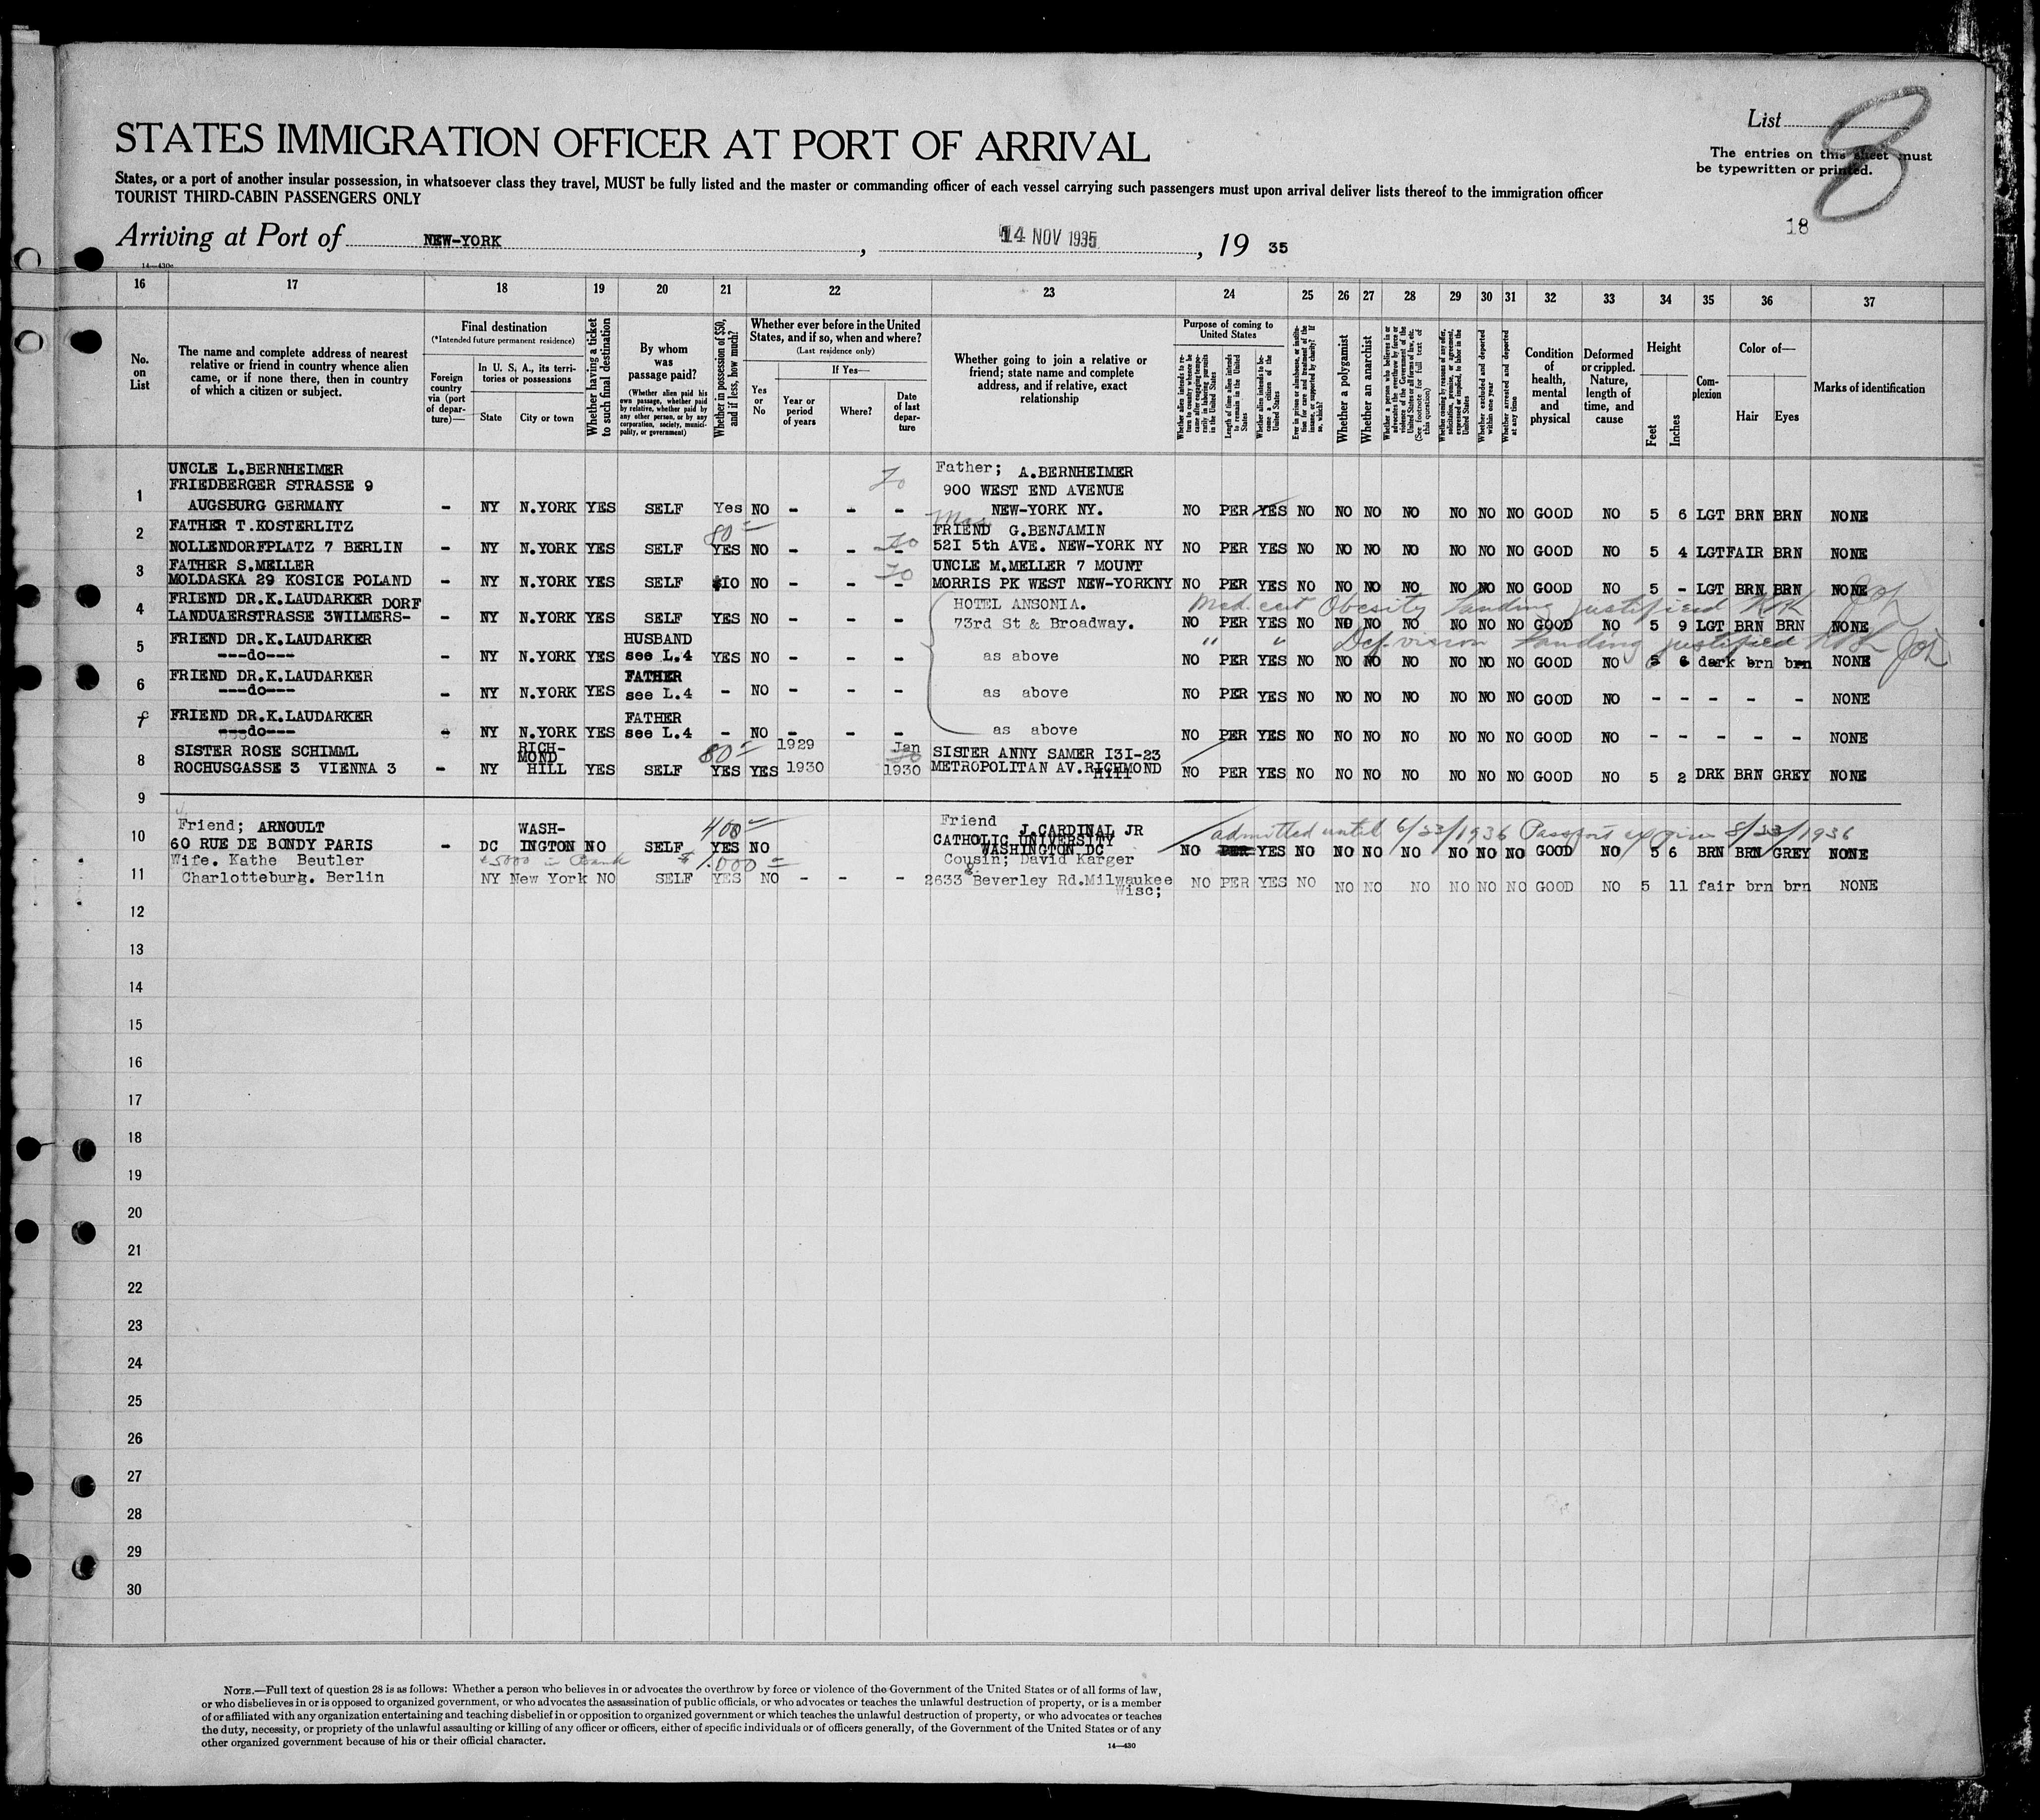 List 8
The entries on this sheet must
be typewritten or printed.
STATES IMMIGRATION OFFICER AT PORT OF ARRIVAL
States, or a port of another insular possession, in whatsoever class they travel, MUST be fully listed and the master or commanding officer of each vessel carrying such passengers must upon arrival deliver lists thereof to the immigration officer
TOURIST THIRD-CABIN PASSENGERS ONLY
18
Arriving at Port of NEW-YORK, 14 NOV 1935, 19 35
14—430c
16 17 18 19 20 21 22 23 24 25 26 27 28 29 30 31 32 33 34 35 36 37
No. on List
The name and complete address of nearest relative or friend in country whence alien came, or if none there, then in country of which a citizen or subject.
Final destination
(*Intended future permanent residence)
Foreign country via (port of departure)—
In U. S. A., its territories or possessions
State
City or town
Whether having a ticket to such final destination
By whom was passage paid?
(Whether alien paid his own passage, whether paid by relative, whether paid by any other person, or by any corporation, society, municipality, or government)
Whether in possession of $50, and if less, how much?
Whether ever before in the United States, and if so, when and where?
(Last residence only)
Yes or No
If Yes—
Year or period of years
Where?
Date of last departure
Whether going to join a relative or friend; state name and complete address, and if relative, exact relationship
Purpose of coming to United States
Whether alien intends to return to country whence he came after engaging temporarily in laboring pursuits in the United States
Length of time alien intends to remain in the United States
Whether alien intends to become a citizen of the United States
Ever in prison or almshouse, or institution for care and treatment of the insane, or supported by charity? If so, which?
Whether a polygamist
Whether an anarchist
Whether a person who believes in or advocates the overthrow by force or violence of the Government of the United States or all forms of law, etc. (See footnote for full text of this question)
Whether coming by reason of any offer, solicitation, promise, or agreement, expressed or implied, to labor in the United States
Whether excluded and deported within one year
Whether arrested and deported at any time
Condition of health, mental and physical
Deformed or crippled. Nature, length of time, and cause
Height
Feet
Inches
Complexion
Color of—
Hair
Eyes
Marks of identification
UNCLE L.BERNHEIMER Father; A.BERNHEIMER
FRIEDBERGER STRASSE 9 900 WEST END AVENUE
1 AUGSBURG GERMANY - NY N.YORK YES SELF Yes NO - - - NEW-YORK NY. NO PER YES NO NO NO NO NO NO NO GOOD NO 5 6 LGT BRN BRN NONE
2 FATHER T.KOSTERLITZ 80= FRIEND G.BENJAMIN
NOLLENDORFPLATZ 7 BERLIN - NY N.YORK YES SELF YES NO - - - 52I 5th AVE. NEW-YORK NY NO PER YES NO NO NO NO NO NO NO GOOD NO 5 4 LGT FAIR BRN NONE
3 FATHER S.MELLER UNCLE M.MELLER 7 MOUNT
MOLDASKA 29 KOSICE POLAND - NY N.YORK YES SELF $IO NO - - - MORRIS PK WEST NEW-YORKNY NO PER YES NO NO NO NO NO NO NO GOOD NO 5 - LGT BRN BRN NONE
4 FRIEND DR.K.LAUDARKER DORF HOTEL ANSONIA. Med. cert Obesity Landing justified
LANDUAERSTRASSE 3WILMERS- - NY N.YORK YES SELF YES NO - - - 73rd St & Broadway. NO PER YES NO NO NO NO NO NO NO GOOD NO 5 9 LGT BRN BRN NONE
5 FRIEND DR.K.LAUDARKER HUSBAND " " Def. vision Landing justified
---do--- - NY N.YORK YES see L.4 YES NO - - - as above NO PER YES NO NO NO NO NO NO NO GOOD NO 5 6 dark brn brn NONE
6 FRIEND DR.K.LAUDARKER FATHER
---do--- - NY N.YORK YES see L.4 - NO - - - as above NO PER YES NO NO NO NO NO NO NO GOOD NO - - - - - NONE
7 FRIEND DR.K.LAUDARKER FATHER
---do--- - NY N.YORK YES see L.4 - NO - - - as above NO PER YES NO NO NO NO NO NO NO GOOD NO - - - - - NONE
8 SISTER ROSE SCHIMML RICH-MOND 80= 1929 Jan SISTER ANNY SAMER I3I-23
ROCHUSGASSE 3 VIENNA 3 - NY HILL YES SELF YES YES 1930 1930 METROPOLITAN AV.RICHMOND HILL NO PER YES NO NO NO NO NO NO NO GOOD NO 5 2 DRK BRN GREY NONE
9
10 Friend; ARNOULT WASH- 400= Friend J.CARDINAL JR admitted until 6/23/1936 Passport expires 8/23/1936
60 RUE DE BONDY PARIS - DC INGTON NO SELF YES NO CATHOLIC UNIVERSITY WASHINGTON DC NO PER YES NO NO NO NO NO NO NO GOOD NO 5 6 BRN BRN GREY NONE
11 Wife. Kathe Beutler 5000 in Bank $1.000= Cousin; David Karger
Charlotteburg. Berlin NY New York NO SELF YES NO - - - 2633 Beverley Rd.Milwaukee Wisc; NO PER YES NO NO NO NO NO NO NO GOOD NO 5 11 fair brn brn NONE
12
13
14
15
16
17
18
19
20
21
22
23
24
25
26
27
28
29
30
NOTE.—Full text of question 28 is as follows: Whether a person who believes in or advocates the overthrow by force or violence of the Government of the United States or of all forms of law,
or who disbelieves in or is opposed to organized government, or who advocates the assassination of public officials, or who advocates or teaches the unlawful destruction of property, or is a member
of or affiliated with any organization entertaining and teaching disbelief in or opposition to organized government or which teaches the unlawful destruction of property, or who advocates or teaches
the duty, necessity, or propriety of the unlawful assaulting or killing of any officer or officers, either of specific individuals or of officers generally, of the Government of the United States or of any
other organized government because of his or their official character.
14—430